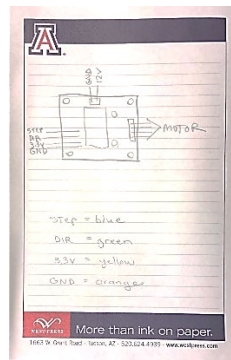 A
GND
12V
MOTOR
STEP
DIR
3.3V
GND
STEP = blue
DIR = green
3.3V = yellow
GND = orange
WEST PRESS
More than ink on paper.
1663 W. Grant Road - Tucson, AZ - 520.624.4939 - www.westpress.com